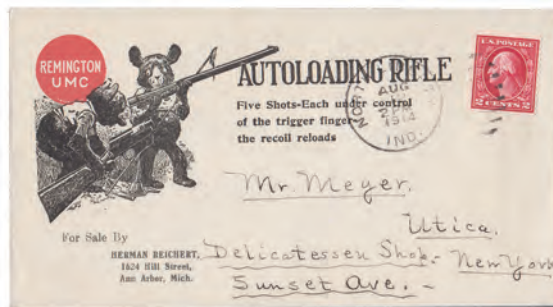 REMINGTON
UMC
AUTOLOADING RIFLE
Five Shots-Each under control
of the trigger finger-
the recoil reloads
AUG
1914
IND.
U.S. POSTAGE
2 CENTS 2
Mr. Meyer,
Utica.
Delicatessen Shop.- New York
Sunset Ave. -
For Sale By
HERMAN REICHERT,
1524 Hill Street,
Ann Arbor, Mich.